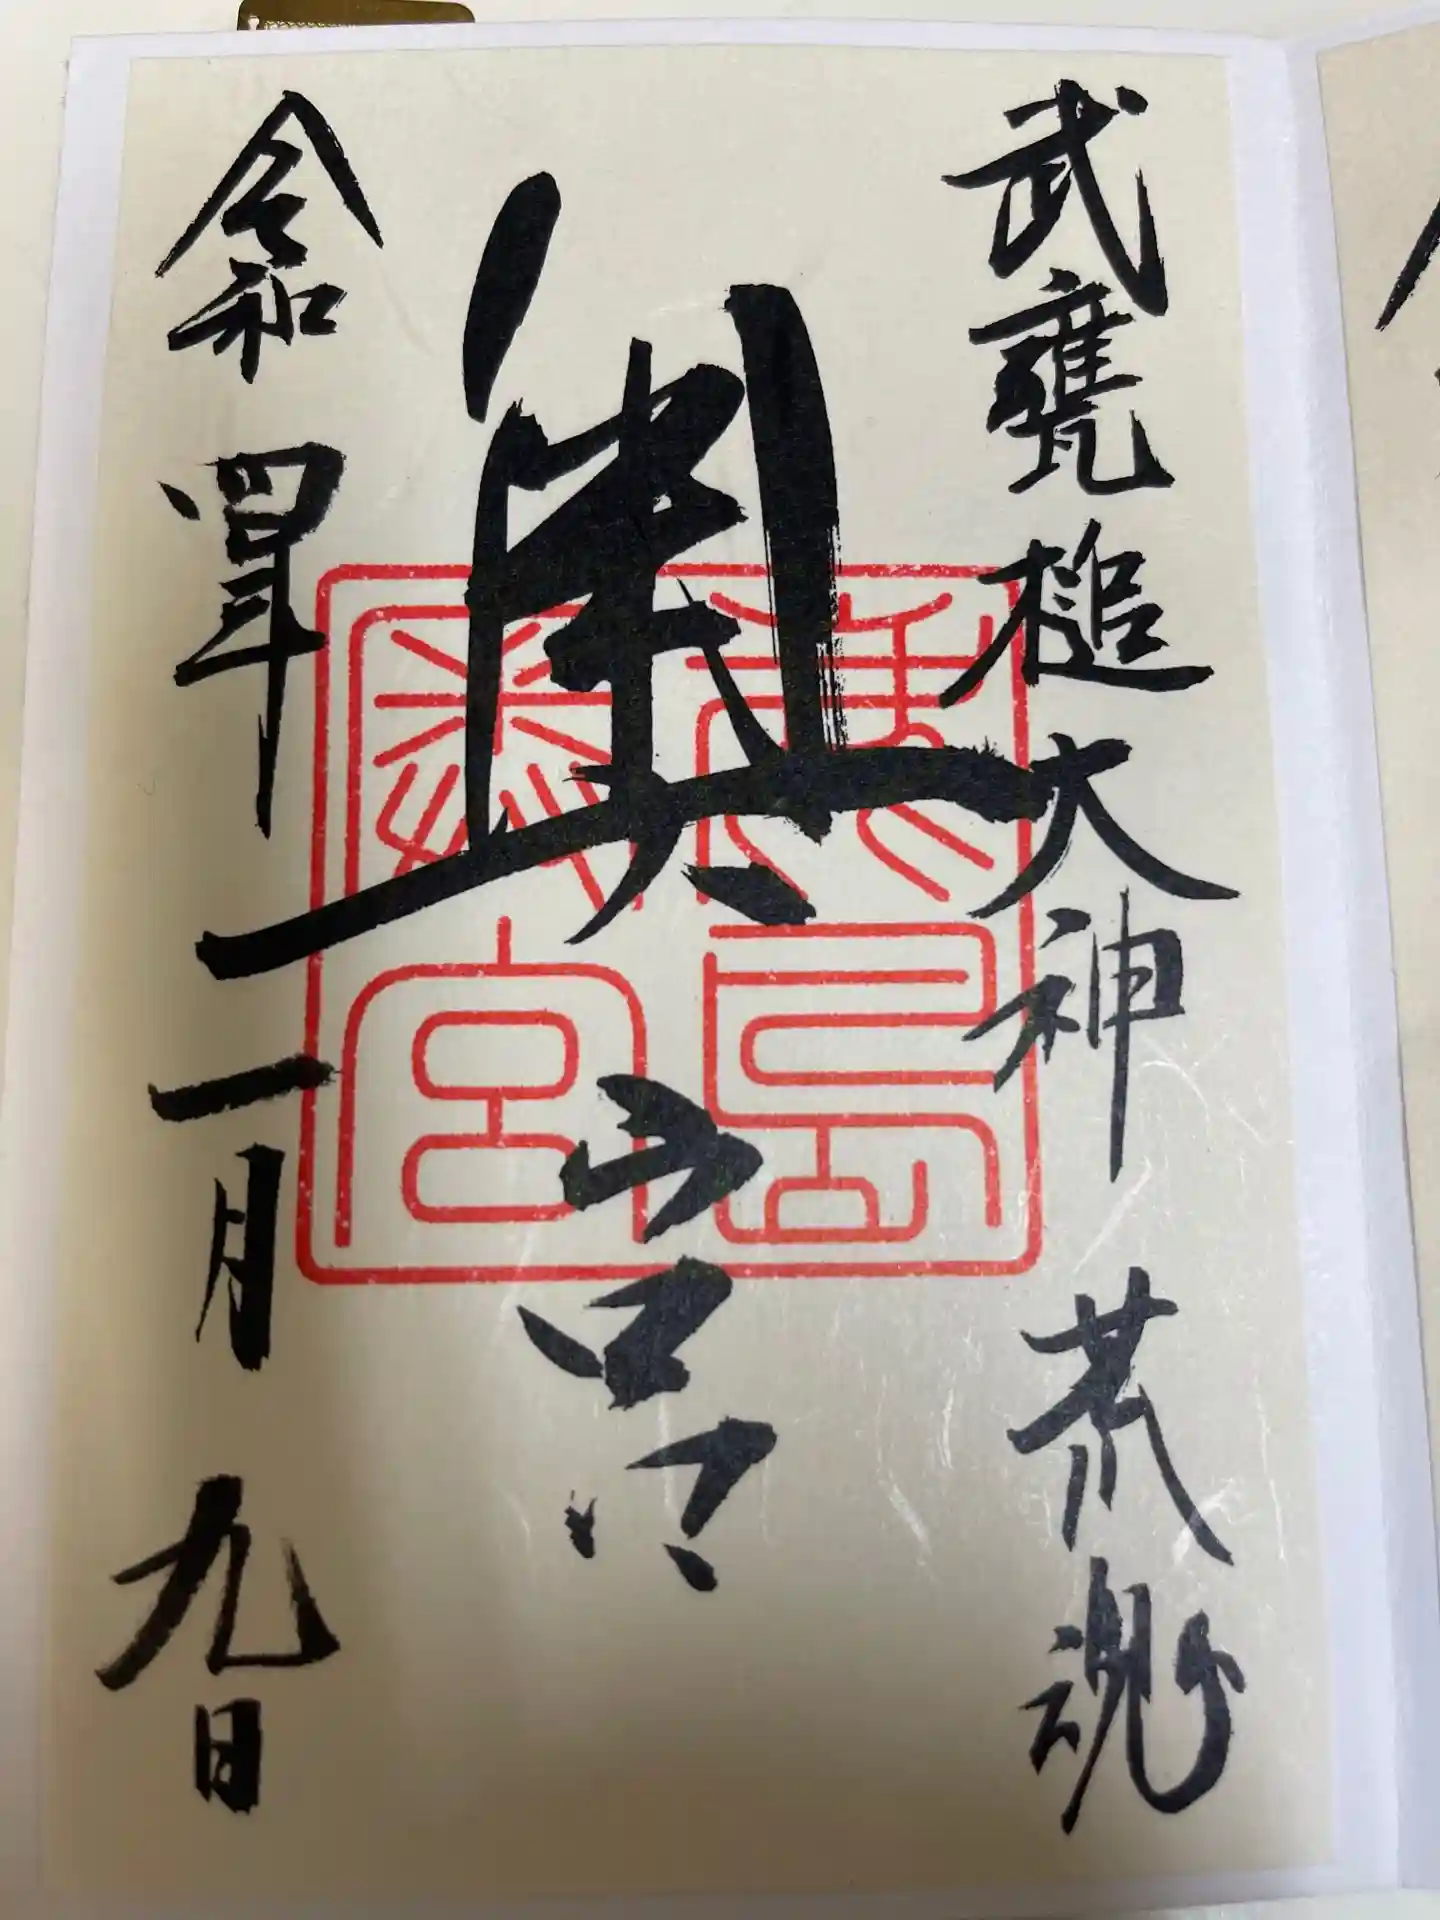 武甕槌大神 荒魂
奥宮
鹿島
奥宮
令和四年一月九日